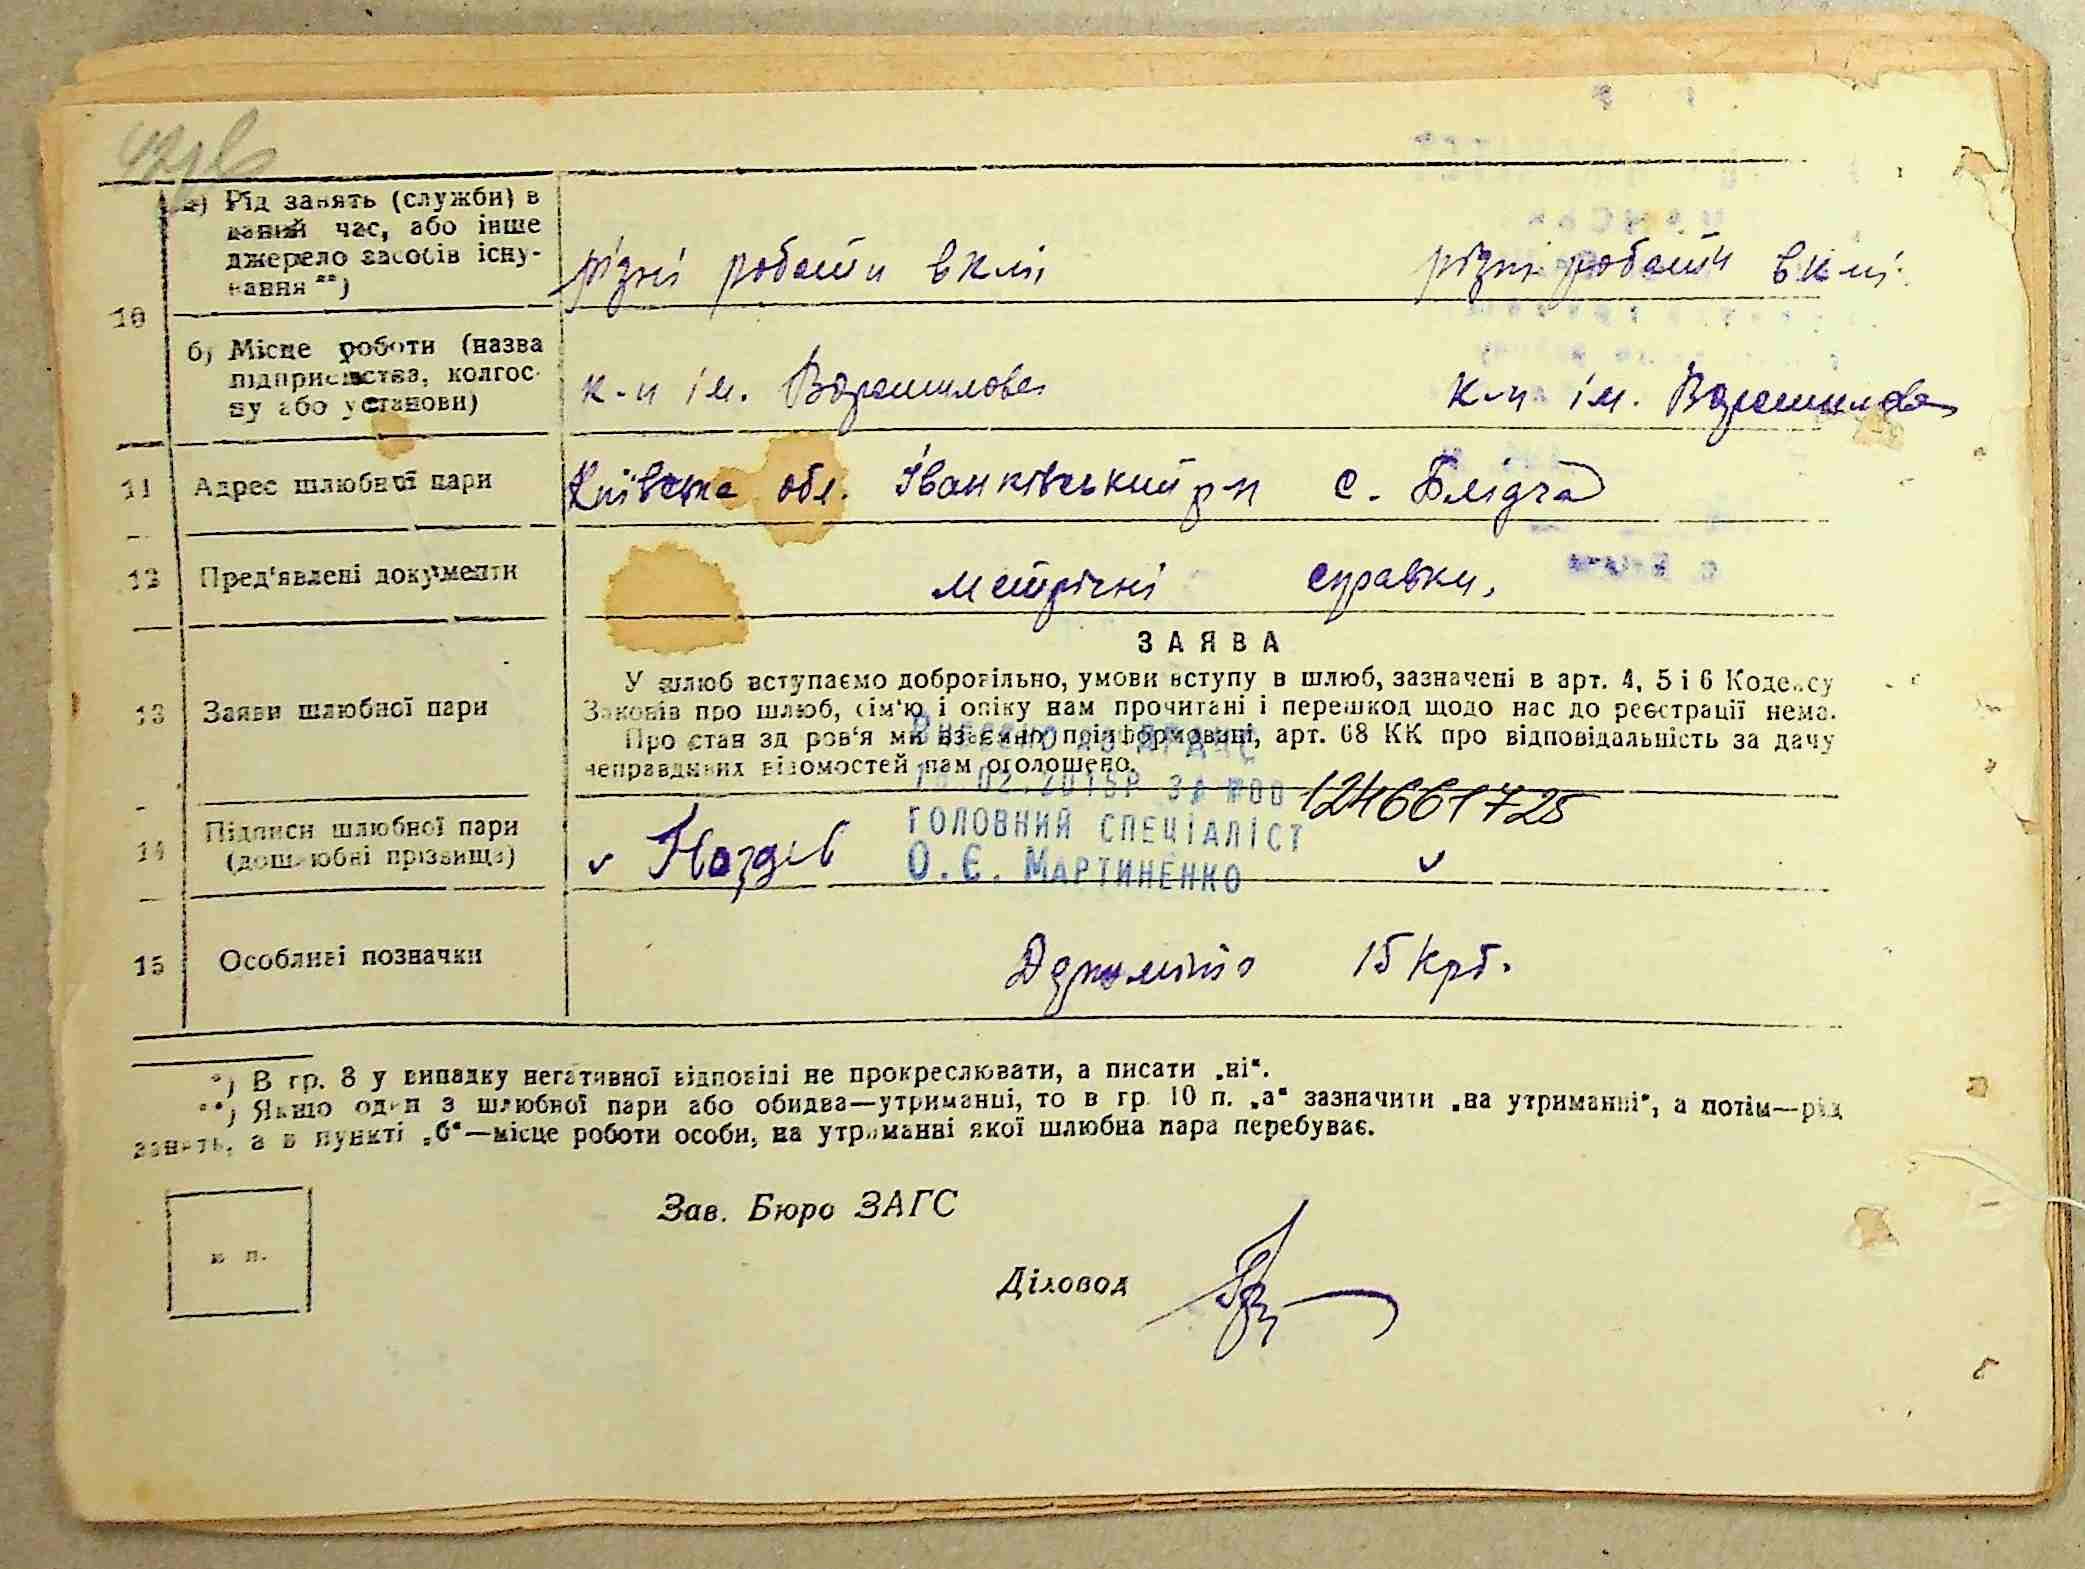 42 зв
10
а) Рід занять (служби) в
даний час, або інше
джерело засобів існу-
вання **)
різні роботи в клі
різні роботи в клі
б) Місце роботи (назва
підприємства, колгос-
пу або установи)
к-п ім. Ворошилова
к-п ім. Ворошилова
11 Адрес шлюбної пари
Київська обл. Іванківський р-н с. Блідча
12 Пред'явлені документи
метрічні справки,
13 Заяви шлюбної пари
ЗАЯВА
У шлюб вступаємо добровільно, умови вступу в шлюб, зазначені в арт. 4, 5 і 6 Кодексу
Законів про шлюб, сім'ю і опіку нам прочитані і перешкод щодо нас до реєстрації нема.
Про стан здоров'я ми взаємно поінформовані, арт. 68 КК про відповідальність за дачу
неправдивих відомостей нам оголошено.
Внесено до ДРАЦС
.02.2015р за №00 124661725
головний спеціаліст
О.Є. Мартиненко
14 Підписи шлюбної пари
(дошлюбні прізвища)
15 Особливі позначки
15 крб.
*) В гр. 8 у випадку негативної відповіді не прокреслювати, а писати „ні“.
**) Якщо один з шлюбної пари або обидва—утриманці, то в гр. 10 п. „а“ зазначити „на утриманні“, а потім—рід
занять, а в пункті „б“—місце роботи особи, на утриманні якої шлюбна пара перебуває.
Зав. Бюро ЗАГС
м. п.
Діловод